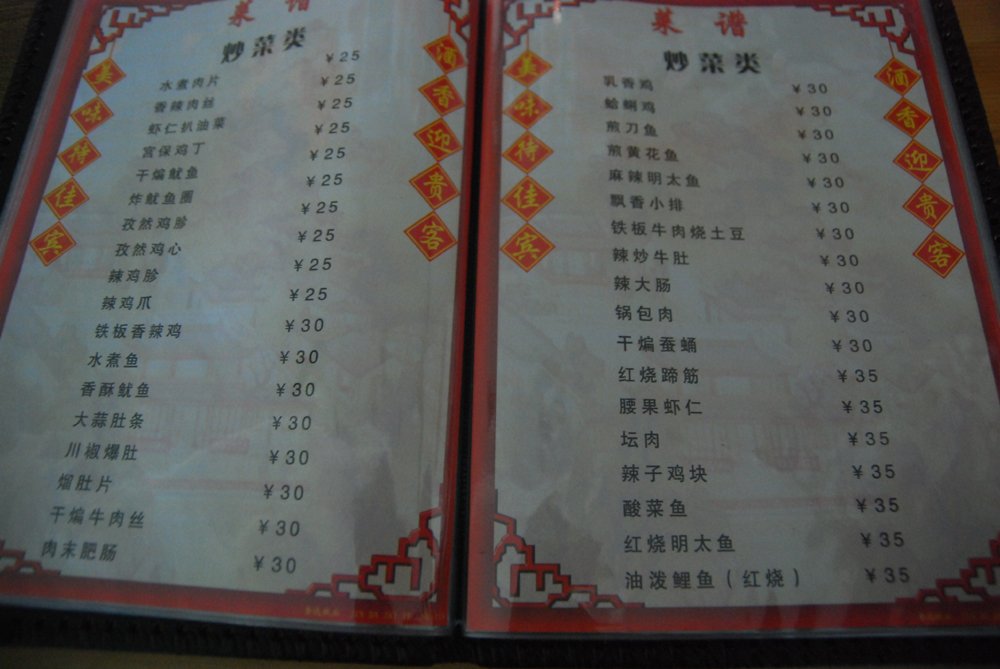 菜谱
炒菜类
美味待佳宾
酒香迎贵客
水煮肉片 ¥25
香辣肉丝 ¥25
虾仁扒油菜 ¥25
宫保鸡丁 ¥25
干煸鱿鱼 ¥25
炸鱿鱼圈 ¥25
孜然鸡胗 ¥25
孜然鸡心 ¥25
辣鸡胗 ¥25
辣鸡爪 ¥25
铁板香辣鸡 ¥30
水煮鱼 ¥30
香酥鱿鱼 ¥30
大蒜肚条 ¥30
川椒爆肚 ¥30
熘肚片 ¥30
干煸牛肉丝 ¥30
肉末肥肠 ¥30
菜谱
炒菜类
美味待佳宾
酒香迎贵客
乳香鸡 ¥30
蛤蜊鸡 ¥30
煎刀鱼 ¥30
煎黄花鱼 ¥30
麻辣明太鱼 ¥30
飘香小排 ¥30
铁板牛肉烧土豆 ¥30
辣炒牛肚 ¥30
辣大肠 ¥30
锅包肉 ¥30
干煸蚕蛹 ¥30
红烧蹄筋 ¥35
腰果虾仁 ¥35
坛肉 ¥35
辣子鸡块 ¥35
酸菜鱼 ¥35
红烧明太鱼 ¥35
油泼鲤鱼（红烧） ¥35